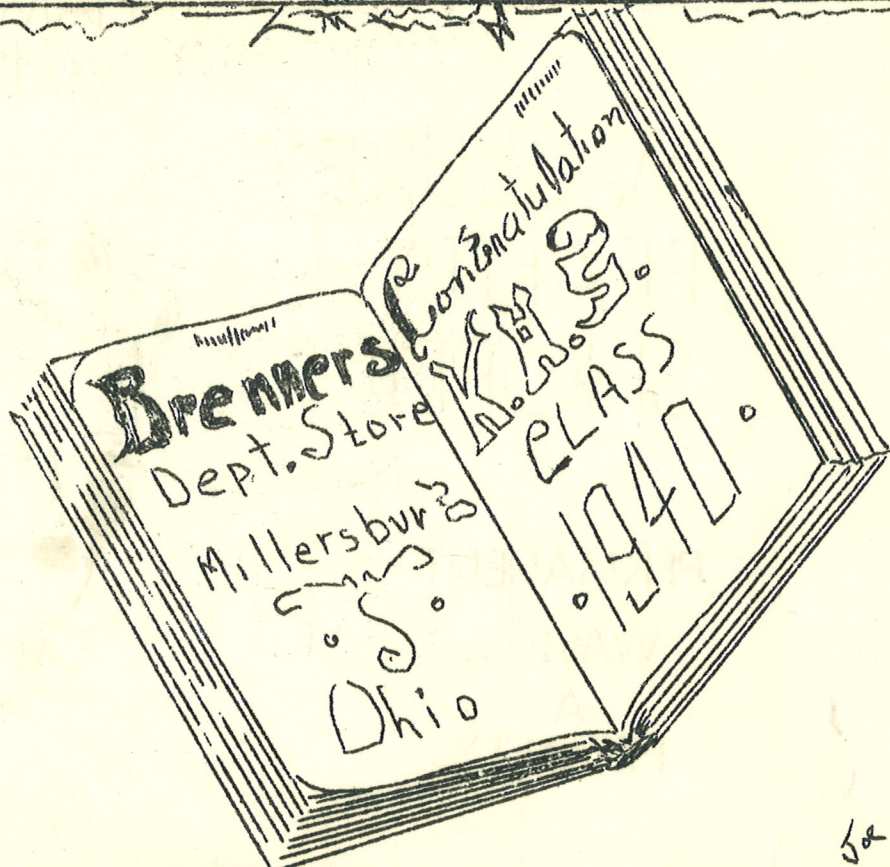 Brenners
Dept. Store
Millersburg
Ohio
Congratulation
K.H.S.
CLASS
1940